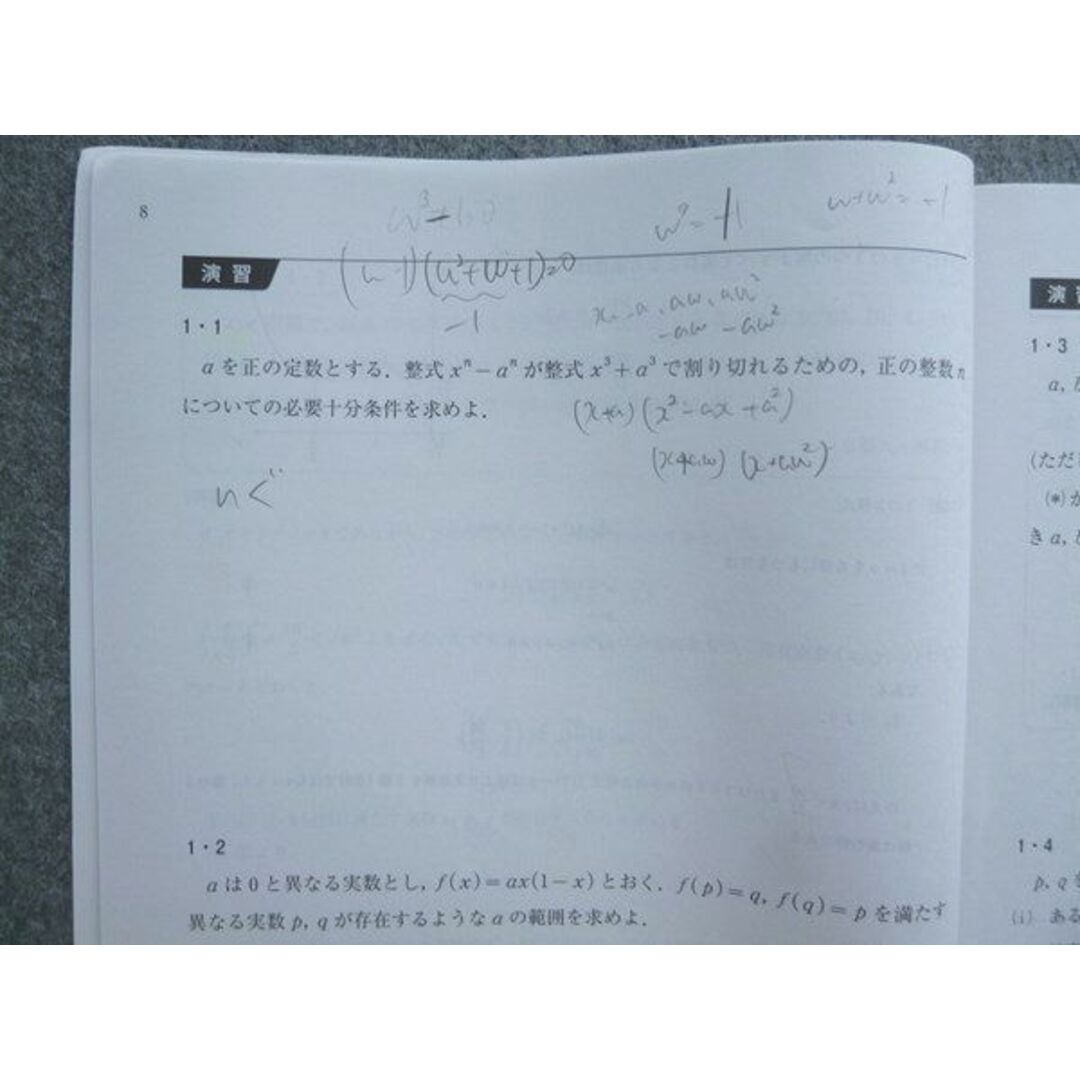 8
ω³+1=0
ω³=+1
ω+ω²=-1
演習
(ω-1)(ω²+ω+1)=0
-1
x=-a, aω, aω²
-aω -aω²
1・1
aを正の定数とする.整式xⁿ-aⁿが整式x³+a³で割り切れるための,正の整数n
についての必要十分条件を求めよ.
(x+a)(x²-ax+a²)
(x+aω)(x+aω²)
nぐ
1・2
aは0と異なる実数とし,f(x)=ax(1-x)とおく.f(p)=q, f(q)=pを満たす
異なる実数p, qが存在するようなaの範囲を求めよ.
演
1・3
a,
(ただ
(*)か
きa,
1・4
p, q
(i) ある